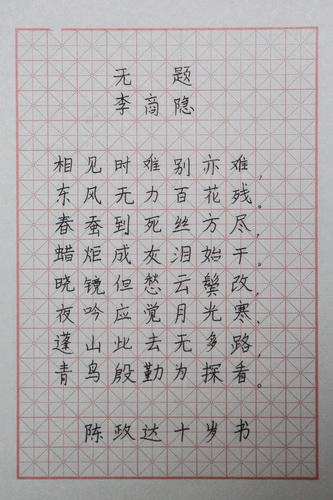 无 题
李商隐
相见时难别亦难，
东风无力百花残。
春蚕到死丝方尽，
蜡炬成灰泪始干。
晓镜但愁云鬓改，
夜吟应觉月光寒、
蓬山此去无多路，
青鸟殷勤为探看。
陈政达十岁书